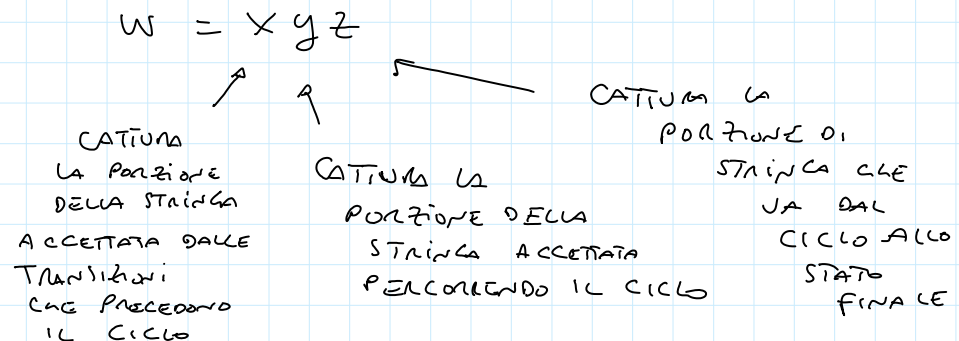 w = x y z
CATTURA
LA PORZIONE
DELLA STRINGA
ACCETTATA DALLE
TRANSIZIONI
CHE PRECEDONO
IL CICLO
CATTURA LA
PORZIONE DELLA
STRINGA ACCETTATA
PERCORRENDO IL CICLO
CATTURA LA
PORZIONE DI
STRINGA CHE
VA DAL
CICLO ALLO
STATO
FINALE